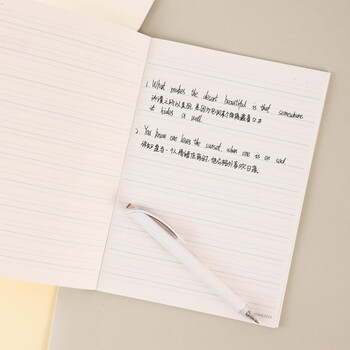 1. What makes the desert beautiful is that somewhere
it hides a well.
沙漠之所以美丽，是因为它的某个角落藏着口井
2. You know one loves the sunset, when one is so sad
你知道当一个人情绪低落时，他会格外喜欢日落。